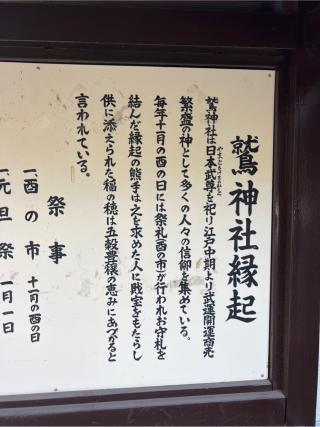 鷲神社縁起
鷲神社は日本武尊を祀り江戸中期より武運開運商売
繁盛の神として多くの人々の信仰を集めている。
毎年十一月の酉の日には祭礼(酉の市)が行われお守札を
結んだ縁起の熊手は之を求めた人に財宝をもたらし
供に添えられた稲の穂は五穀豊穣の恵みにあづかると
言われている。
祭事
一酉の市 十一月の酉の日
一元旦祭 一月一日